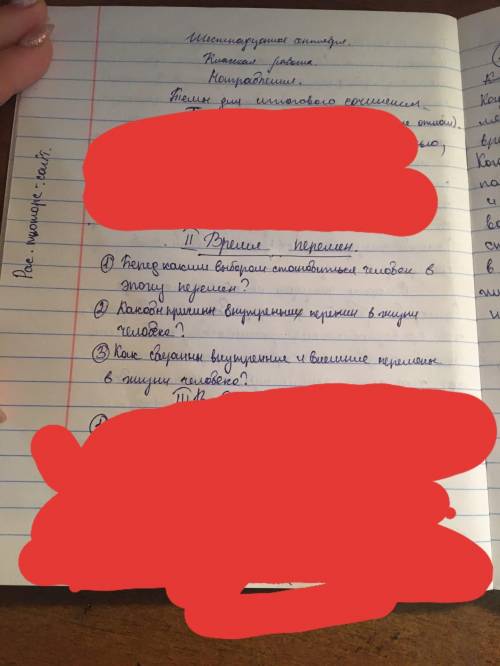 Шестнадцатое октября.
Классная работа.
Направления.
Темы для итогового сочинения.
II Время перемен.
① Перед каким выбором становиться человек в
эпоху перемен?
② Каковы причины внутренних перемен в жизни
человека?
③ Как связанны внутренние и внешние перемены
в жизни человека?
III
①